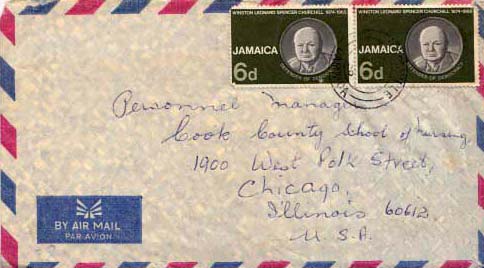 WINSTON LEONARD SPENCER CHURCHILL 1874-1965
JAMAICA
6d
DEFENDER OF DEMOCRACY
WINSTON LEONARD SPENCER CHURCHILL 1874-1965
JAMAICA
6d
DEFENDER OF DEMOCRACY
Personnel Manager
Cook County School of Nursing
1900 West Polk Street,
Chicago,
Illinois 60612
U.S.A.
BY AIR MAIL
PAR AVION